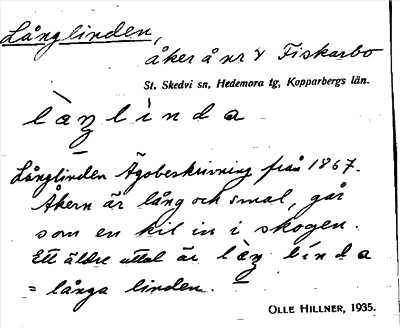 Långlinden,
åker å nr 8 Fiskarbo
St. Skedvi sn, Hedemora tg, Kopparbergs län.
làŋlìnda
Långlinden Ägobeskrivning från 1867.
Åkern är lång och smal, går
som en kil in i skogen.
Ett äldre uttal är làŋ línda
= långa linden.
OLLE HILLNER, 1935.